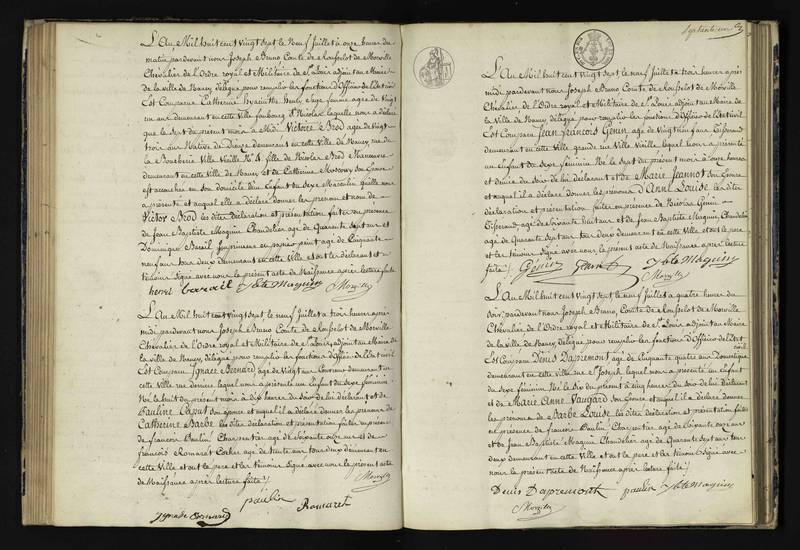 L'An Mil huit cent vingt sept le Neuf Juillet à onze heures du
matin pardevant nous Joseph Bruno Comte de Rousselot de Morville
Chevalier de l'Ordre royal et Militaire de St Louis adjoint au Maire
de la ville de Nancy délégué pour remplir les fonctions d'Officier de l'Etat civil
Est Comparue Catherine Hyacinthe Sage femme agée de vingt
en cette Ville faubourg St Nicolas laquelle nous a déclaré
que le Sept du présent mois à Midi Victoire Brod agée de vingt
trois ans Native de Dieuze demeurant en cette ville de Nancy rue de
la Boucherie Ville Vieille No fille de Nicolas Brod
demeurant en cette ville de Nancy et de Catherine son Epouse
est accouchée en son domicile d'un Enfant du Sexe Masculin qu'elle nous
a présenté et auquel elle a déclaré donner les prénom et nom de
Victor Brod les dites déclaration et présentation faites en présence
de Jean Baptiste Maquin Chandelier agé de Quarante Sept ans et
Dominique Bareil Imprimeur en papier peint agé de Cinquante
neuf ans tous deux demeurant en cette Ville et ont les déclarant et
témoins Signé avec nous le présent acte de Naissance après lecture faite
henri bareil Jbte Maquin Morville
L'An Mil huit cent vingt sept le neuf Juillet à trois heures après
midi pardevant nous Joseph Bruno Comte de Rousselot de Morville
Chevalier de l'Ordre royal et Militaire de St Louis adjoint au Maire de
la ville de Nancy, délégué pour remplir les fonctions d'Officier de l'Etat civil
Est Comparu Ignace Bernard agé de Vingt ans demeurant en
cette Ville rue lequel nous a présenté un Enfant du Sexe féminin
Né le huit du présent mois à dix heures du Soir de lui déclarant et de
Pauline Caput son épouse et auquel il a déclaré donner les prénoms de
Catherine Barbe les dites déclaration et présentation faites en présence
de francois Paulin Charpentier agé de Soixante onze ans et de
francois Romaret Cocher agé de trente ans tous deux demeurant en
cette Ville et ont le père et les témoins Signé avec nous le présent acte
de Naissance après lecture faite
Morville
paulin Romaret
Ignace Bernard
L'An Mil huit cent vingt sept le neuf Juillet à trois heures après
midi pardevant nous Joseph Bruno Comte de Rousselot de Morville
Chevalier de l'Ordre royal et Militaire de St Louis adjoint au Maire de
la Ville de Nancy délégué pour remplir les fonctions d'Officier de l'Etat civil
Est Comparu Jean francois Genin agé de Vingt neuf ans Tisserand
demeurant en cette Ville grande rue Ville Vieille lequel nous a présenté
un Enfant du Sexe féminin Né le Sept du présent mois à onze heures
et demie du Soir de lui déclarant et de Marie Jeannot son Epouse
et auquel il a déclaré donner les prénoms d'Anne Louise les dites
déclaration et présentation faites en présence de Nicolas Genin
Tisserand agé de Soixante huit ans et de Jean Baptiste Maquin Chandelier
agé de Quarante Sept ans tous deux demeurant en cette Ville et ont le père
et les témoins Signé avec nous le présent acte de Naissance après lecture
faite Génin Jbte Maquin
Morville
L'An Mil huit cent vingt sept le neuf Juillet à quatre heures du
Soir pardevant nous Joseph Bruno, Comte de Rousselot de Morville
Chevalier de l'Ordre royal et Militaire de St Louis adjoint au Maire
de la ville de Nancy délégué pour remplir les fonctions d'Officier de l'Etat
civil
Est Comparu Denis Dapremont agé de Cinquante quatre ans Domestique
demeurant en cette Ville rue St Joseph lequel nous a présenté un Enfant
du Sexe féminin Né le Six du présent à cinq heures du Soir de lui déclarant
et de Marie Anne Vaugard Son Epouse et auquel il a déclaré donner
les prénoms de Barbe Louise les dites déclaration et présentation faites
en présence de francois Paulin Charpentier agé de Soixante onze ans
et de Jean Baptiste Maquin Chandelier agé de Quarante Sept ans tous
deux demeurant en cette Ville et ont le père et les témoins Signé avec
nous le présent acte de Naissance après lecture faite
Denis Dapremont paulin Jbte Maquin
Morville